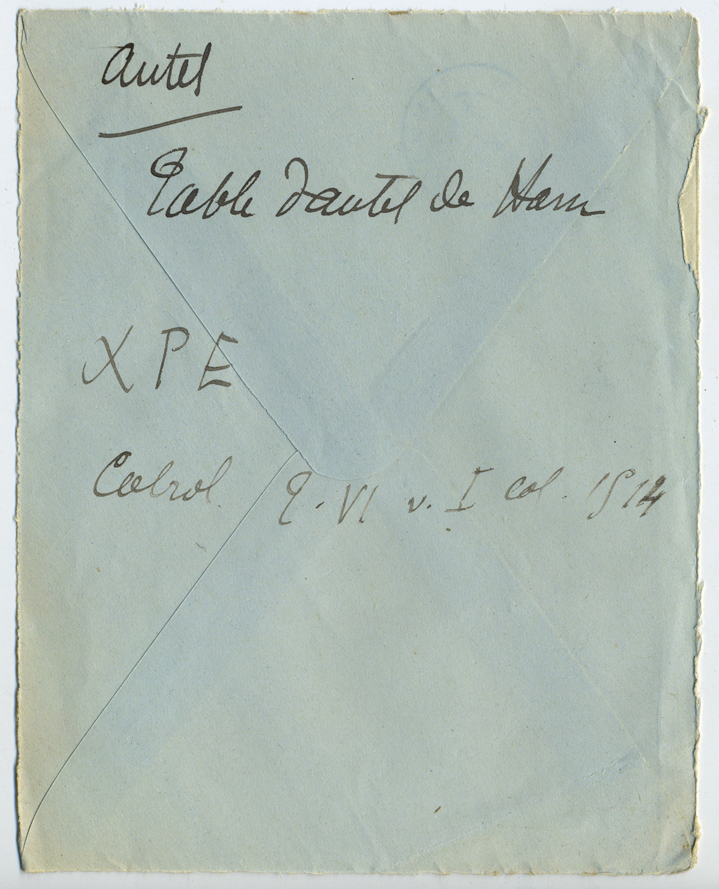 Autel
Table d'autel de Ham
XPE
Cabrol T. VI v. I col. 1514